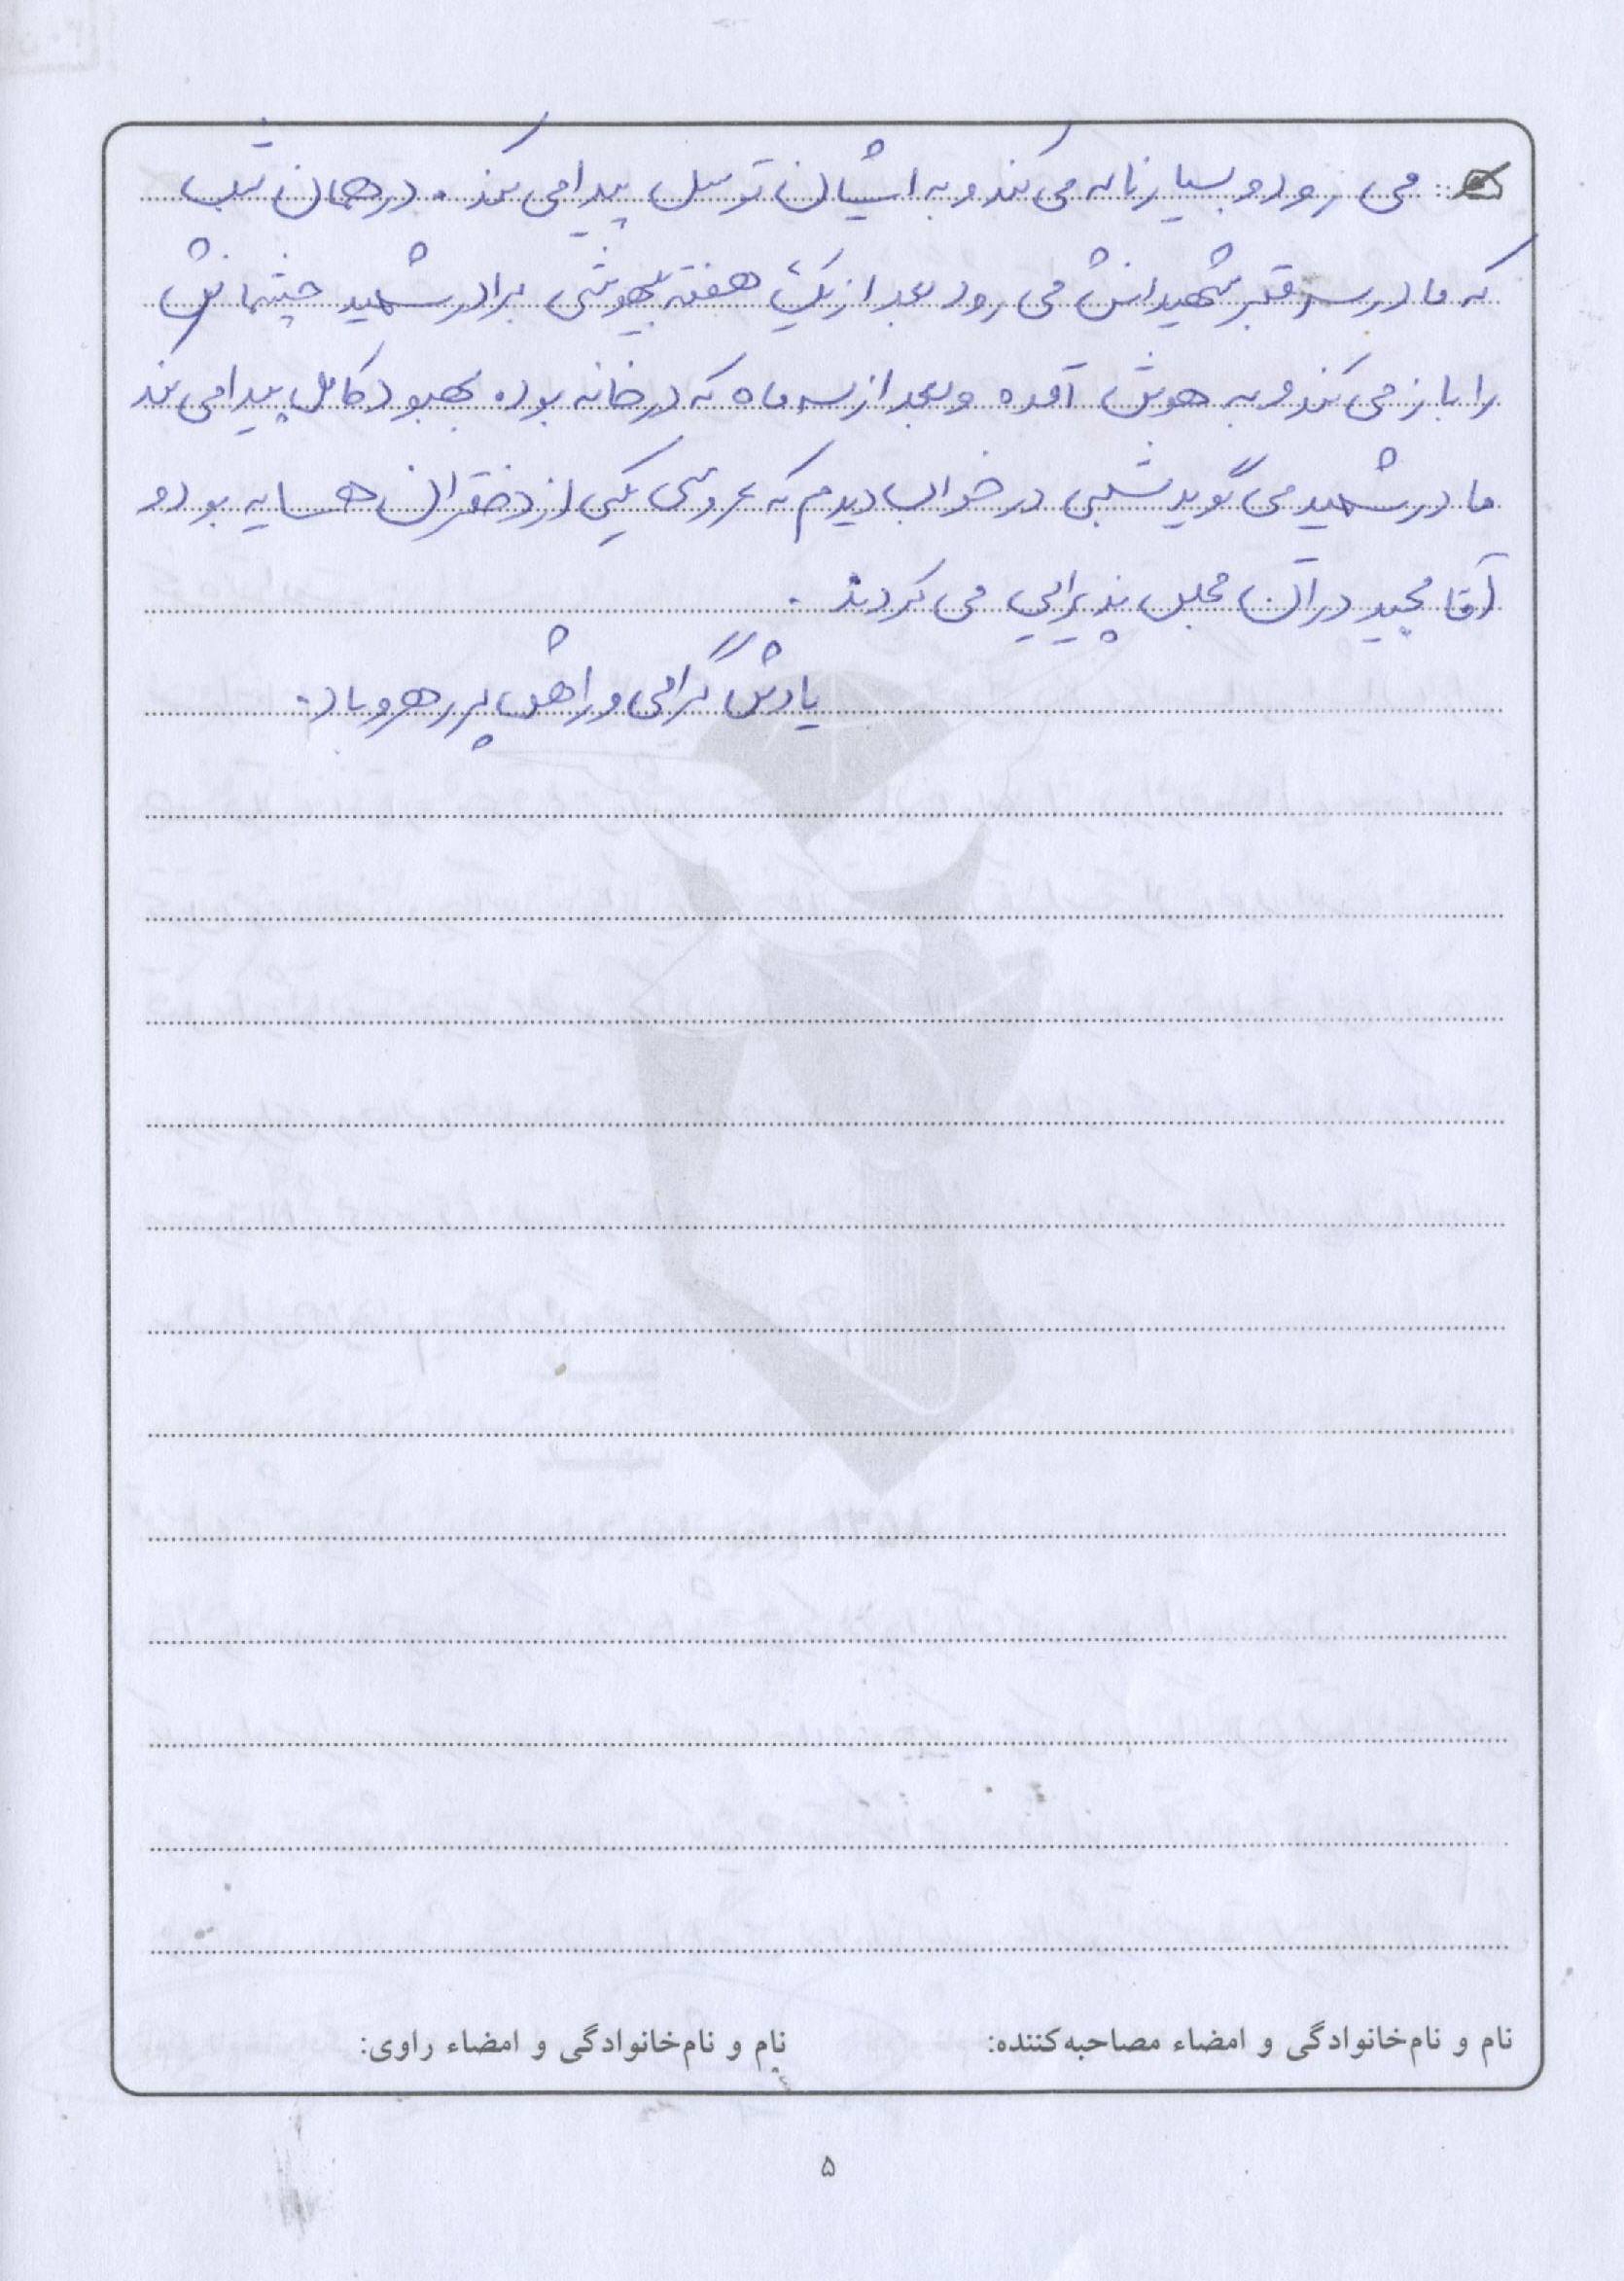 می رود و بسیار ناله می کند و به ایشان توسل پیدا می کند . در همان شب
که مادر سر قبر شهیدانش می رود بعد از یک هفته بیهوشی برادر شهید چشمانش
را باز می کند و به هوش آمده و بعد از سه ماه که در خانه بوده بهبود کامل پیدا می کند
مادر شهید می گوید شبی در خواب دیدم که عروسی یکی از دختران همسایه بود و
آقا مجید در آن مجلس پذیرایی می کردند .
یادش گرامی و راهش پر رهرو باد.
نام و نام‌خانوادگی و امضاء مصاحبه‌کننده: نام و نام‌خانوادگی و امضاء راوی:
۵